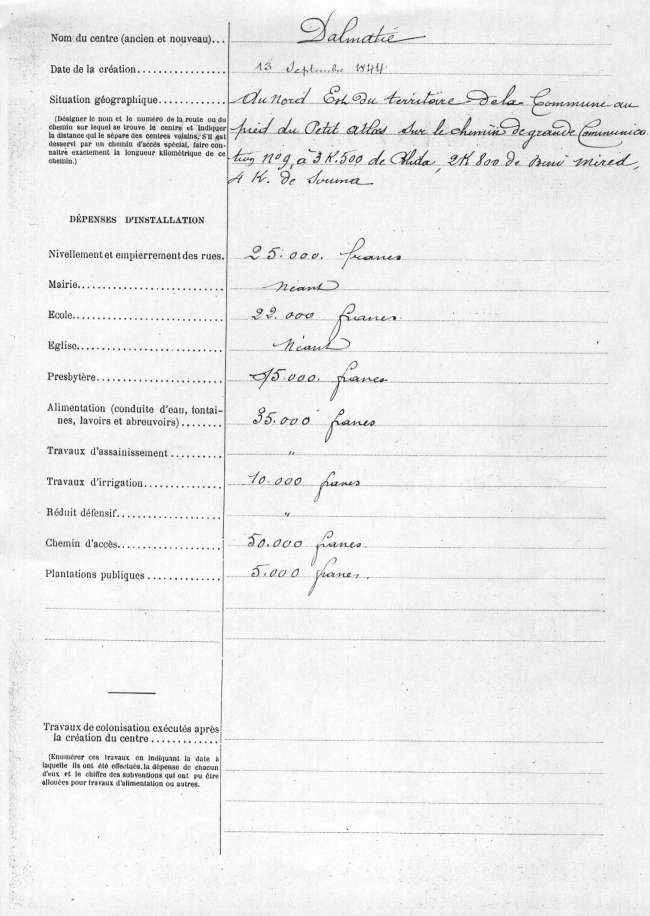 Nom du centre (ancien et nouveau)... Dalmatie
Date de la création................ 13 Septembre 1844
Situation géographique............ Au Nord Est du territoire de la Commune au
(Désigner le nom et le numéro de la route ou du
chemin sur lequel se trouve le centre et indiquer
la distance qui le sépare des centres voisins, S'il est
desservi par un chemin d'accès spécial, faire con-
naître exactement la longueur kilométrique de ce
chemin.)
pied du Petit Atlas sur le chemin de grande Communica
tion No 9, à 3K.500 de Blida, 2K 800 de Beni Mired,
4 K. de Souma
DÉPENSES D'INSTALLATION
Nivellement et empierrement des rues. 25.000. francs
Mairie............................ Néant
Ecole............................. 22.000 francs.
Eglise............................ Néant
Presbytère........................ 15.000. francs
Alimentation (conduite d'eau, fontai-
nes, lavoirs et abreuvoirs)........ 35.000 francs
Travaux d'assainissement.......... "
Travaux d'irrigation.............. 10.000 francs
Réduit défensif................... "
Chemin d'accès.................... 50.000 francs.
Plantations publiques............. 5.000 francs.
Travaux de colonisation exécutés après
la création du centre.............
(Enumérer ces travaux en indiquant la date à
laquelle ils ont été effectués, la dépense de chacun
d'eux et le chiffre des subventions qui ont pu être
allouées pour travaux d'alimentation ou autres.